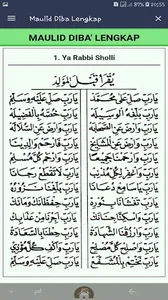 20:55
Maulid Diba Lengkap
MAULID DIBA' LENGKAP
1. Ya Rabbi Sholli
يُقْرَأُ قَبْلَ الْمَوْلِدِ
يَارَبِّ صَلِّ عَلَى مُحَمَّدْ يَارَبِّ صَلِّ عَلَيْهِ وَسَلِّمْ
يَارَبِّ بَلِّغْهُ الْوَسِيْلَةْ يَارَبِّ خُصَّهُ بِالْفَضِيْلَةْ
يَارَبِّ وَارْضَ عَنِ الصَّحَابَةْ يَارَبِّ وَارْضَ عَنِ السُّلَالَةْ
يَارَبِّ وَارْضَ عَنِ الْمَشَايِخْ يَارَبِّ وَارْحَمْ وَالِدِيْنَا
يَارَبِّ وَارْحَمْنَا جَمِيْعًا يَارَبِّ وَارْحَمْ كُلَّ مُسْلِمْ
يَارَبِّ وَاغْفِرْ لِكُلِّ مُذْنِبْ يَارَبِّ لَا تَقْطَعْ رَجَانَا
يَارَبِّ يَاسَامِعْ دُعَانَا يَارَبِّ بَلِّغْنَا نَزُوْرُهْ
يَارَبِّ تَغْشَانَا بِنُوْرِهْ يَارَبِّ حِفْظَانَكْ وَأَمَانَكْ
يَارَبِّ وَاسْكِنَّا جِنَانَكْ يَارَبِّ أَجِرْنَا مِنْ عَذَابِكْ
يَارَبِّ وَارْزُقْنَا الشَّهَادَةْ يَارَبِّ حِطْنَا بِالسَّعَادَةْ
يَارَبِّ وَاصْلِحْ كُلَّ مُصْلِحْ يَارَبِّ وَاكْفِ كُلَّ مُؤْذِيْ
يَارَبِّ نَخْتِمْ بِالْمُشَفَّعْ يَارَبِّ صَلِّ عَلَيْهِ وَسَلِّمْ